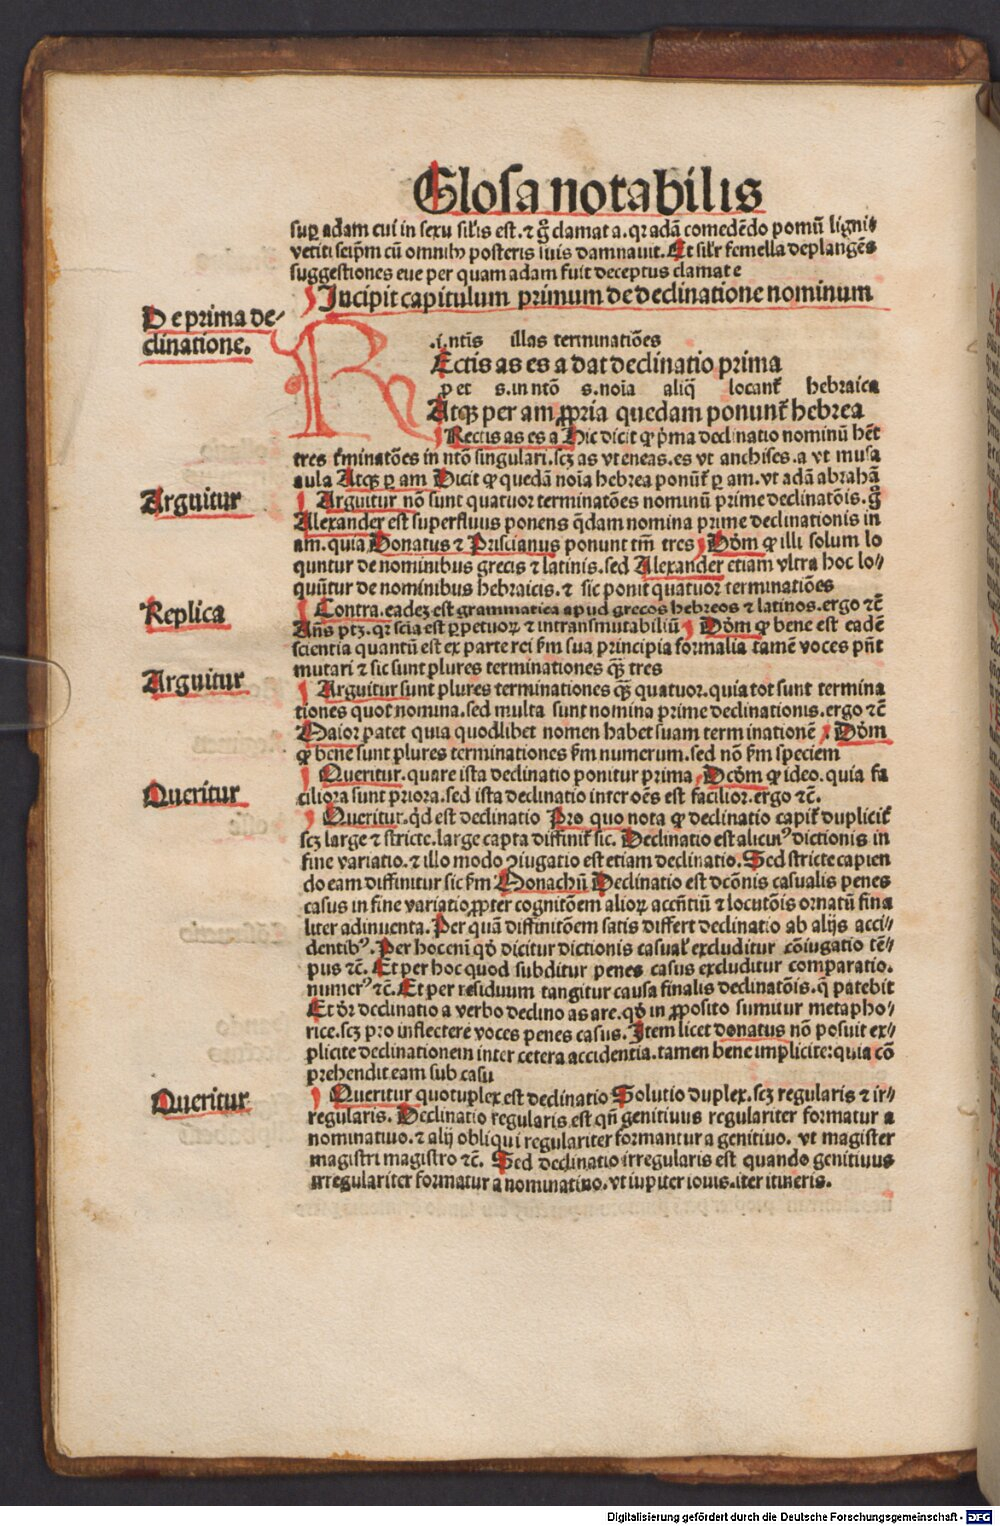 Glosa notabilis
sup̱ adam cui in sexu sil̓is est. ⁊ g̊ clamat a. qꝛ adā comedēdo pomū ligni
vetiti seip̄m cū omnibꝰ posteris suis damnauit. Et sil̓r femella deplangēs
suggestiones eue per quam adam fuit deceptus clamat e
Incipit capitulum primum de declinatione nominum
De prima de⸗
clinatione.
.i. ntīs illas terminatiōes
REctis as es a dat declinatio prima
p et s. in ntō s. noīa aliq̄ locant̄ hebraica
Atqꝫ per am ꝓpria quedam ponunt̄ hebrea
Rectis as es a Hic dicit ꝙ pͥma declinatio nominū hēt
tres t̓minatōes in ntō singulari. scꝫ as vt eneas. es vt anchises. a vt musa
aula Atqꝫ ꝑ am Dicit ꝙ quedā noīa hebrea ponūt̄ ꝑ am. vt adā abrahā
Arguitur
Arguitur nō sunt quatuor terminatōes nominū prime declinatōis. g̊
Alexander est superfluus ponens q̄dam nomina prime declinationis in
am. quia Donatus ⁊ Priscianus ponunt tm̄ tres Dōm ꝙ illi solum lo
quntur de nominibus grecis ⁊ latinis. sed Alexander etiam vltra hoc lo⸗
quūtur de nominibus hebraicis. ⁊ sic ponit quatuor terminatiōes
Replica
Contra. eadeꝫ est grammatica apud grecos hebreos ⁊ latinos. ergo ⁊c̄
Añs ptꝫ. qꝛ scīa est ꝑpetuoꝝ ⁊ intransmutabiliū Dōm ꝙ bene est eadē
scientia quantū est ex parte rei s̓m sua principia formalia tamē voces pn̄t
mutari ⁊ sic sunt plures terminationes qꝫ̄ tres
Arguitur
Arguitur sunt plures terminationes qꝫ̄ quatuor. quia tot sunt termina
tiones quot nomina. sed multa sunt nomina prime declinationis. ergo ⁊c̄
Maior patet quia quodlibet nomen habet suam terminationē Dōm
ꝙ bene sunt plures terminationes s̓m numerum. sed nō s̓m speciem
Queritur
Queritur. quare ista declinatio ponitur prima Dcōm ꝙ ideo. quia fa
ciliora sunt priora. sed ista declinatio inter oēs est facilior. ergo ⁊c̄.
Queritur. qd̓ est declinatio Pro quo nota ꝙ declinatio capit̄ duplicit̓
scꝫ large ⁊ stricte. large capta diffinit̄ sic. Declinatio est alicuiꝰ dictionis in
fine variatio. ⁊ illo modo ꝯiugatio est etiam declinatio. Sed stricte capien
do eam diffinitur sic s̓m Monachū Declinatio est dcōnis casualis penes
casus in fine variatio ꝓpter cognitōem alioꝝ accn̄tiū ⁊ locutōis ornatū fina
liter adinuenta. Per quā diffinitōem satis differt declinatio ab alijs acci⸗
dentibꝰ. Per hoc enī qd̓ dicitur dictionis casual̓ excluditur cōiugatio tē⸗
pus ⁊c̄. Et per hoc quod subditur penes casus excluditur comparatio.
numerꝰ ⁊c̄. Et per residuum tangitur causa finalis declinatōis. q̄ patebit
Et dr̄ declinatio a verbo declino as are. qd̓ in ꝓposito sumitur metapho⸗
rice. scꝫ pro inflectere voces penes casus. Item licet donatus nō posuit ex⸗
plicite declinationem inter cetera accidentia. tamen bene implicite: quia cō
prehendit eam sub casu
Queritur
Queritur quotuplex est declinatio Solutio duplex. scꝫ regularis ⁊ ir⸗
regularis. Declinatio regularis est qn̄ genitiuus regulariter formatur a
nominatiuo. ⁊ alij obliqui regulariter formantur a genitiuo. vt magister
magistri magistro ⁊c̄. Sed declinatio irregularis est quando genitiuus
irregulariter formatur a nominatiuo. vt iupiter iouis. iter itineris.
Digitalisierung gefördert durch die Deutsche Forschungsgemeinschaft - DFG